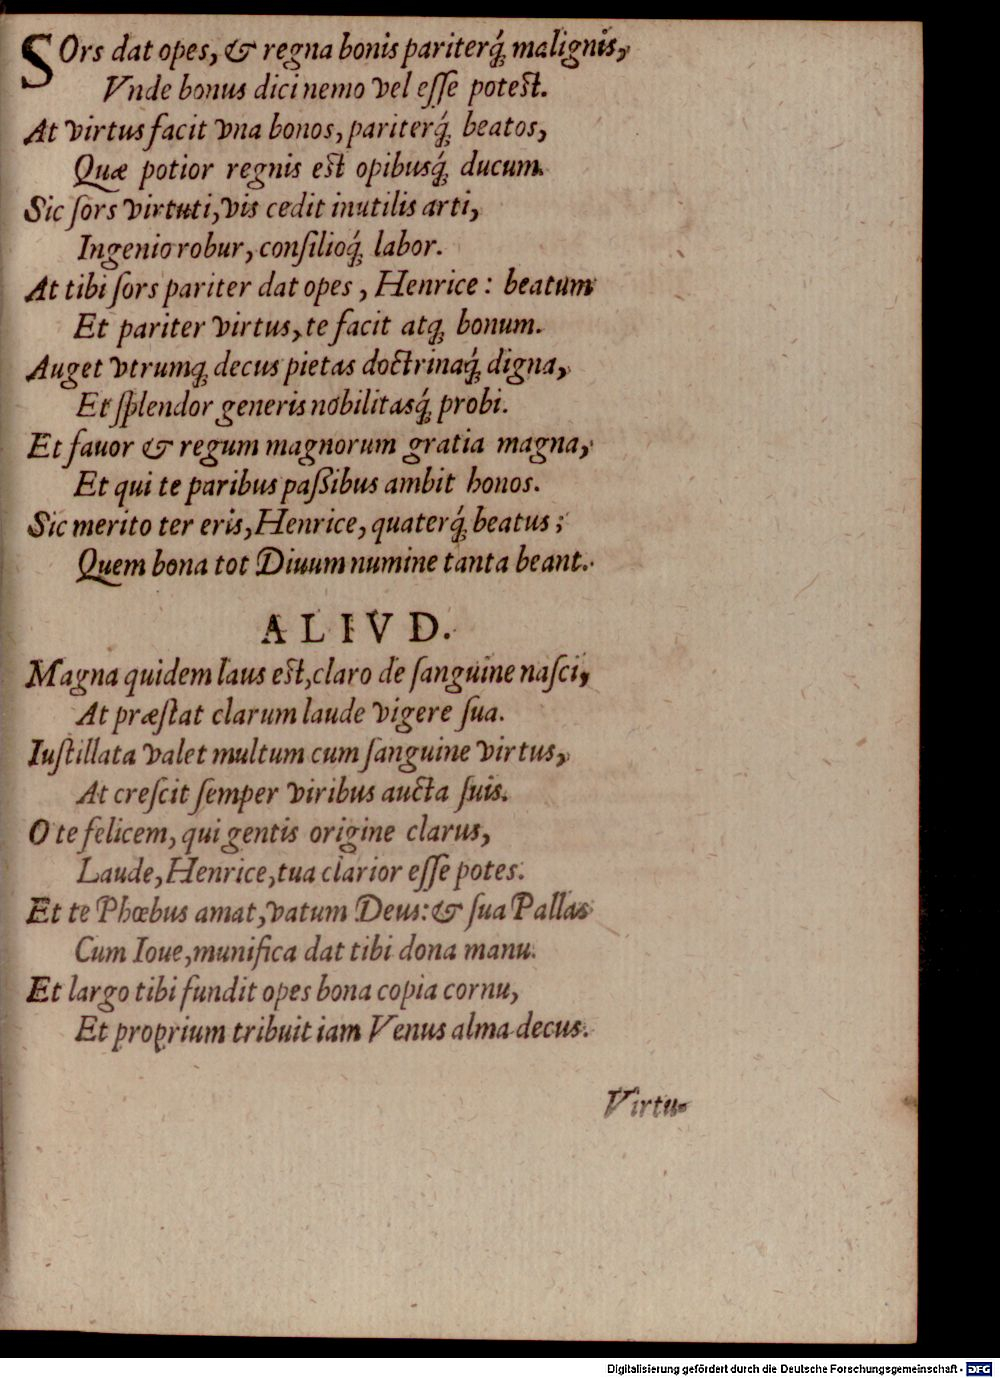 SOrs dat opes, & regna bonis pariterq́; malignis,
Vnde bonus dici nemo vel eſſe potest.
At virtus facit vna bonos, pariterq́; beatos,
Quæ potior regnis est opibusq́; ducum.
Sic ſors virtuti, vis cedit inutilis arti,
Ingenio robur, conſilioq́; labor.
At tibi ſors pariter dat opes, Henrice: beatum
Et pariter virtus, te facit atq; bonum.
Auget vtrumq; decus pietas doctrinaq́; digna,
Et ſplendor generis nobilitasq́; probi.
Et fauor & regum magnorum gratia magna,
Et qui te paribus paßibus ambit honos.
Sic merito ter eris, Henrice, quaterq́; beatus;
Quem bona tot Diuum numine tanta beant.
ALIVD.
Magna quidem laus est, claro de ſanguine naſci,
At præſtat clarum laude vigere ſua.
Iuſtillata valet multum cum ſanguine virtus,
At creſcit ſemper viribus aucta ſuis.
O te felicem, qui gentis origine clarus,
Laude, Henrice, tua clarior eſſe potes.
Et te Phœbus amat, vatum Deus: & ſua Pallas
Cum Ioue, munifica dat tibi dona manu.
Et largo tibi fundit opes bona copia cornu,
Et proprium tribuit iam Venus alma decus.
Virtu-
Digitalisierung gefördert durch die Deutsche Forschungsgemeinschaft - DFG